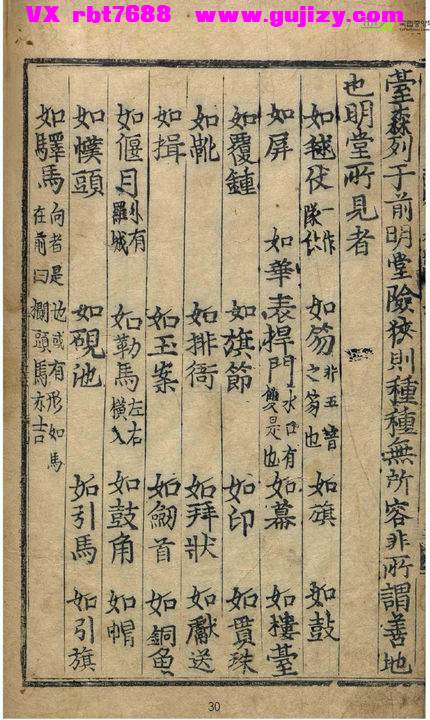 VX rbt7688 www.gujizy.com
臺森列于前明堂險狹則種種無所容非所謂善地
也明堂所見者
如毬仗一作隊仗 如笏非玉音之笏也 如旗 如鼓
如屏 如華表捍門水口有雙是也 如幕 如樓臺
如覆鍾 如旗節 如印 如貫珠
如靴 如排衙 如拜狀 如獻送
如揖 如玉案 如劒首 如銅魚
如偃月外有羅城 如勒馬左右橫入 如鼓角 如帽
如幞頭 如硯池 如引馬 如引旗
如驛馬向者是也或有形如馬在前曰攔頭馬亦吉
30